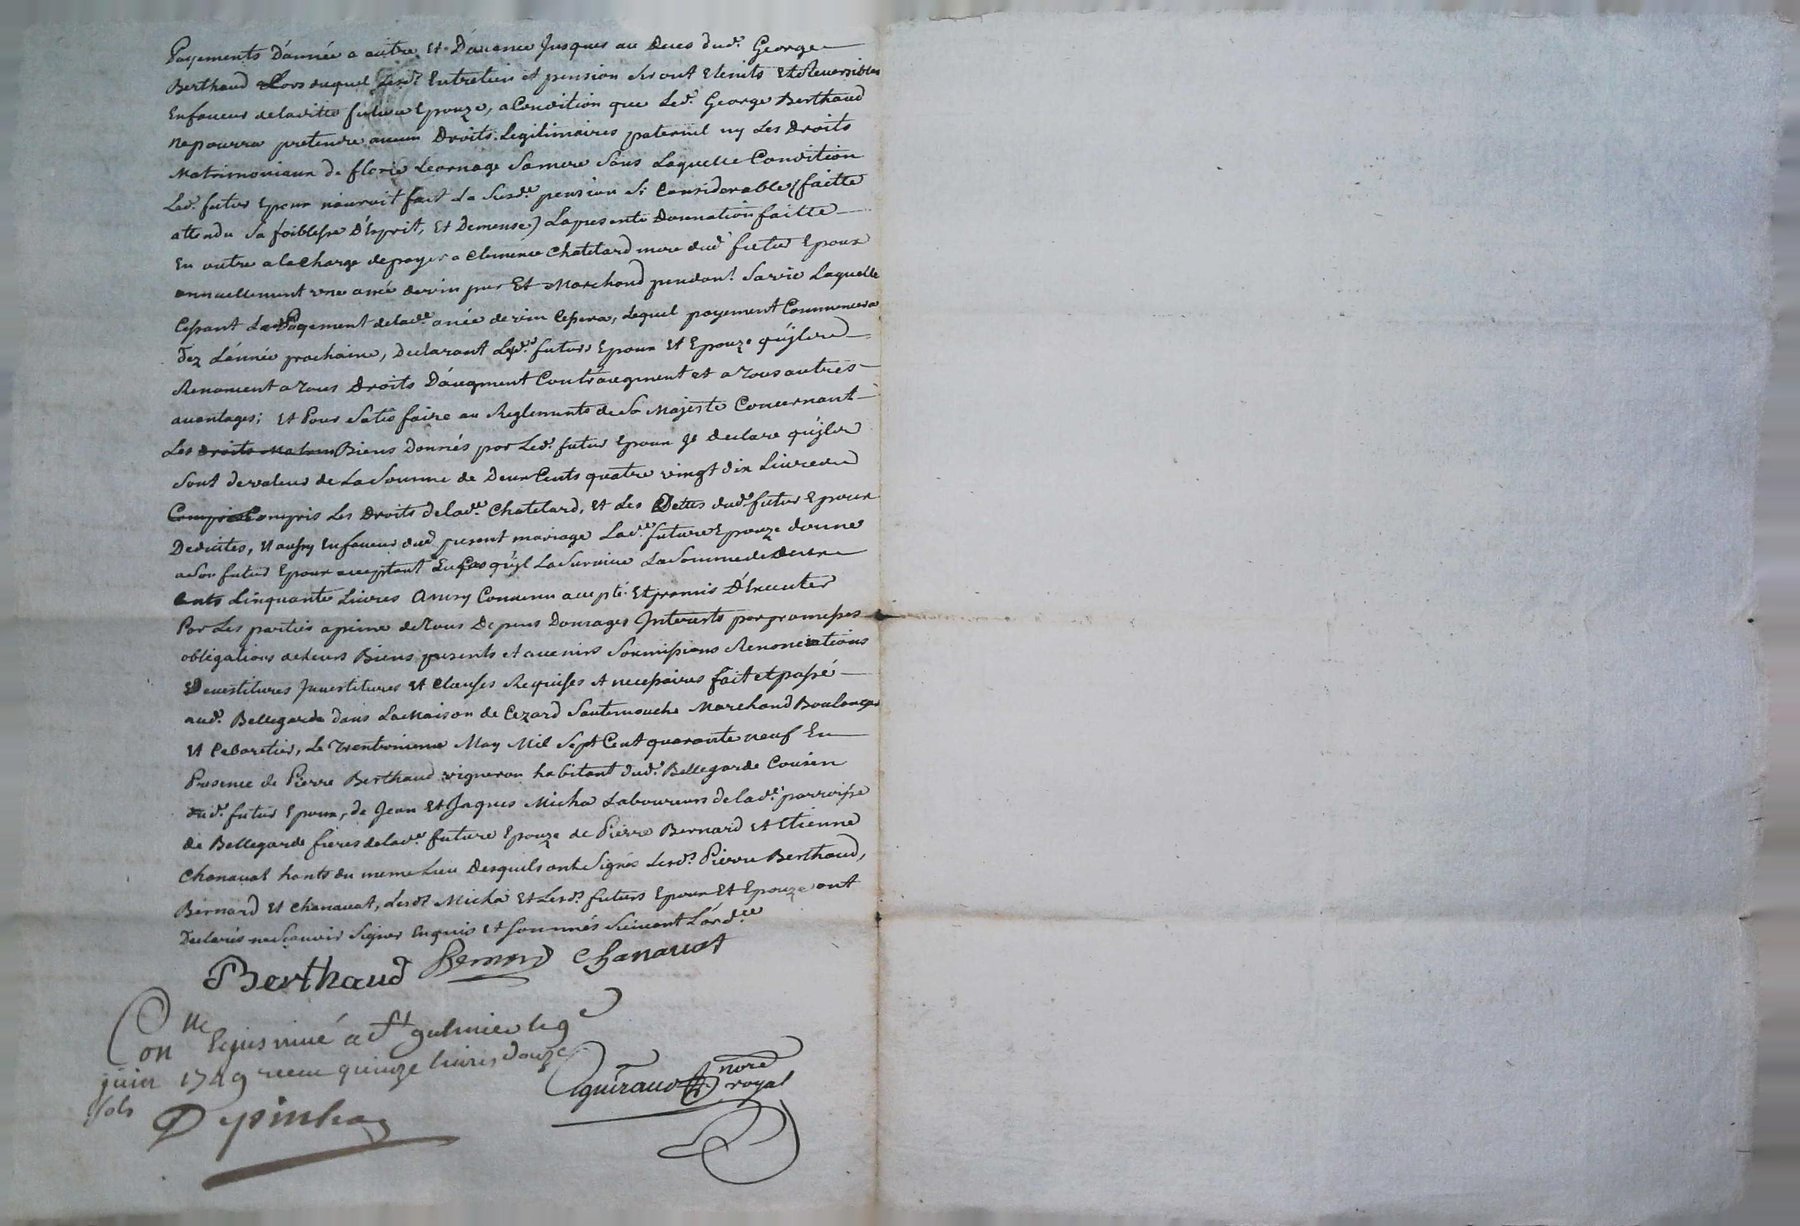 Payements D'année a autre et D'auance Jusques au Deces dud. George
Berthaud Lors duquel lesd. Entretien et pension seront Eteints Et Reuersibles
En faueur de laditte future Epouze, a Condition que Led. George Berthaud
ne pourra pretendre aucun Droits Legitimaires paternel ny Les Droits
Matrimoniaux de florie Leornage Sa mere Sans Laquelle Condition
Led. futur Epoux n'auroit fait La Susd.e pension Si Considerable (faitte
attendu Sa foiblesse D'Esprit, Et Demense) La presente Donnation faitte
En outre a la Charge de payer a Clemence Chatelard mere dud. futur Epoux
annuellement une anée de vin pur Et Marchand pendant Sa vie Laquelle
Cessant Led. Payement de lad.e anée de vin Cessera, Lequel payement Commencera
Dez L'année prochaine, Declarant Lesd. futurs Epoux Et Epouze qu'jls
Renoncent a Tous Droits D'augment Contraugment et a Tous autres
auantages; Et Pour Satisfaire au Reglements de Sa Majesté Concernant
Les droits Matrim Biens Donnés par Led. futur Epoux Je declare qu'jls
Sont de valeur de La Somme de Deux Cents quatre vingt dix Livres
Compris Compris Les Droits de lad.e Chatelard, Et Les Dettes dud. futur Epoux
Deduites, Et aussy En faueur dud. present mariage Lad.e future Epouze donne
a Son futur Epoux acceptant En Cas qu'jl La Suruive La Somme de Deux
Cents Cinquante Livres Ainsy Conuenu accepté Et promis D'Executer
Par Les parties a peine de Tous Depens Domages Interests par promesses
obligations de Leurs Biens presents et auenirs Soumissions Renonciations
Deuestitures Inuestitures Et Clauses Requises Et necessaires fait et passé
aud. Bellegarde dans La Maison de Cezard Sautemouche Marchand Boulanger
Et Cabaretier, Le Trentunieme May Mil Sept Cent quarante neuf En
Presence de Pierre Berthaud vigneron habitant dud. Bellegarde Cousin
dud. futur Epoux, de Jean Et Jaques Micha Laboureurs de lad.e parroisse
de Bellegarde freres de lad.e future Epouze de Pierre Bernard Et Etienne
Chanauat hants du meme Lieu Desquils ont Signé Lesd. Pierre Berthaud,
Bernard Et Chanauat, Lesd. Micha Et Lesd. futurs Epoux Et Epouze ont
Declarés ne Scauoir Signer Enquis Et Sommés Suiuant L'ord.ce
Berthaud Bernard Chanauat
Con.lle Et insinué a St galmier le 9e
juin 1749 receu quinze liures douze
sols
Depinhac
guiraud nore
royal